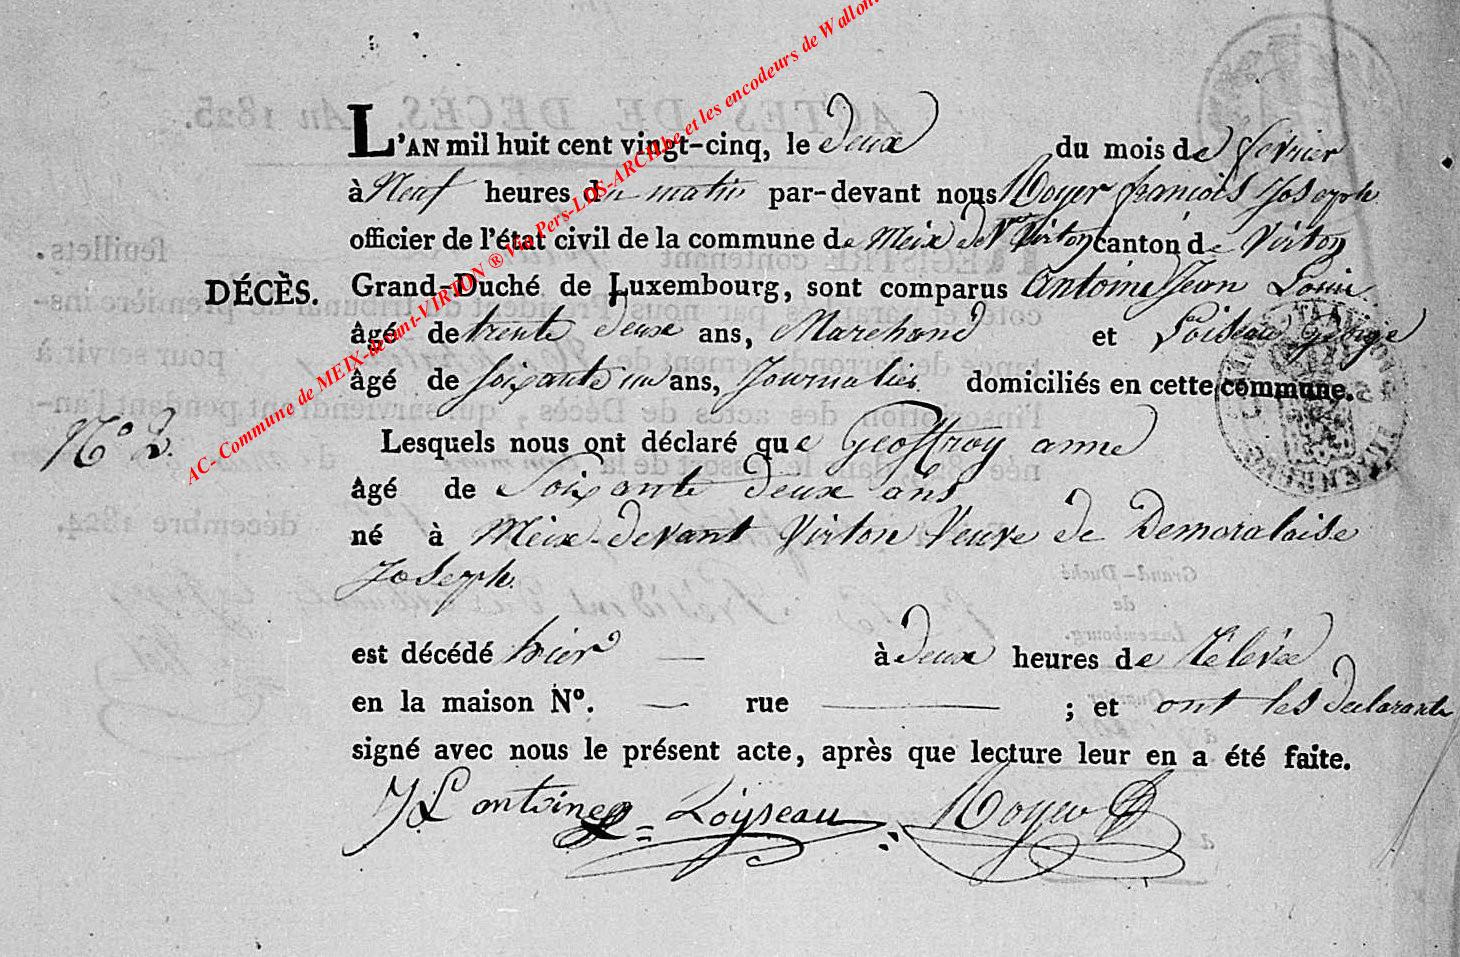 L'AN mil huit cent vingt-cinq, le deux du mois de février
à Neuf heures du matin par-devant nous Royer françois Joseph
officier de l'état civil de la commune de Meix devt Virton canton de Virton
DÉCÈS. Grand-Duché de Luxembourg, sont comparus Antoine Jean Louis
âgé de trente deux ans, Marchand et Loiseau George
âgé de soixante un ans, Journalier domiciliés en cette commune.
No 2. Lesquels nous ont déclaré que Geoffroy anne
âgé de Soixante deux ans
né à Meix-devant Virton Veuve de Demoralaise
Joseph.
est décédé hier — à deux heures de relevée
en la maison No. — rue — ; et ont les declarants
signé avec nous le présent acte, après que lecture leur en a été faite.
JL antoine Loÿseau Royer
AC- Commune de MEIX-devant-VIRTON ® Via Pers-LDS-ARCH.be et les encodeurs de Wallon